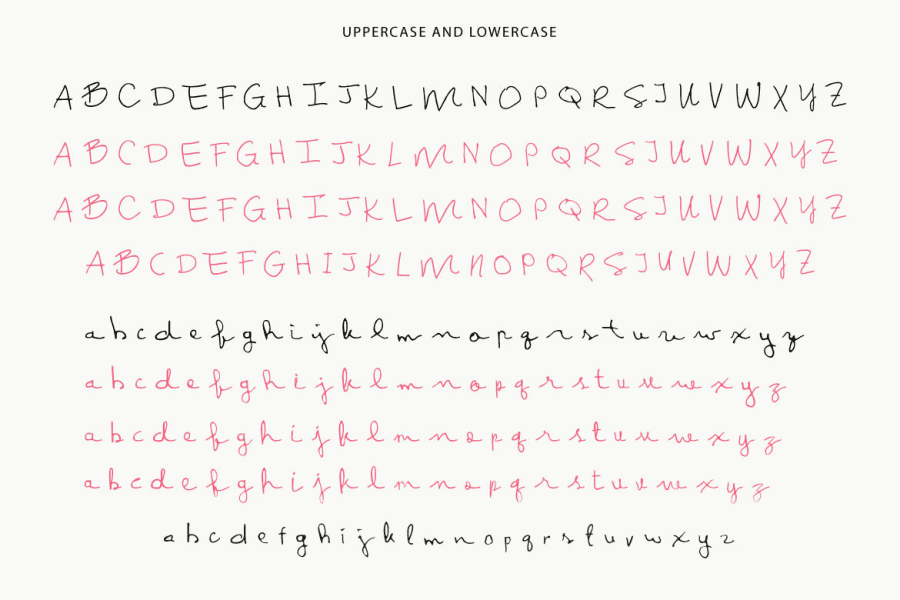 UPPERCASE AND LOWERCASE
A B C D E F G H I J K L M N O P Q R S T U V W X Y Z
A B C D E F G H I J K L M N O P Q R S T U V W X Y Z
A B C D E F G H I J K L M N O P Q R S T U V W X Y Z
A B C D E F G H I J K L M N O P Q R S T U V W X Y Z
a b c d e f g h i j k l m n o p q r s t u v w x y z
a b c d e f g h i j k l m n o p q r s t u v w x y z
a b c d e f g h i j k l m n o p q r s t u v w x y z
a b c d e f g h i j k l m n o p q r s t u v w x y z
a b c d e f g h i j k l m n o p q r s t u v w x y z